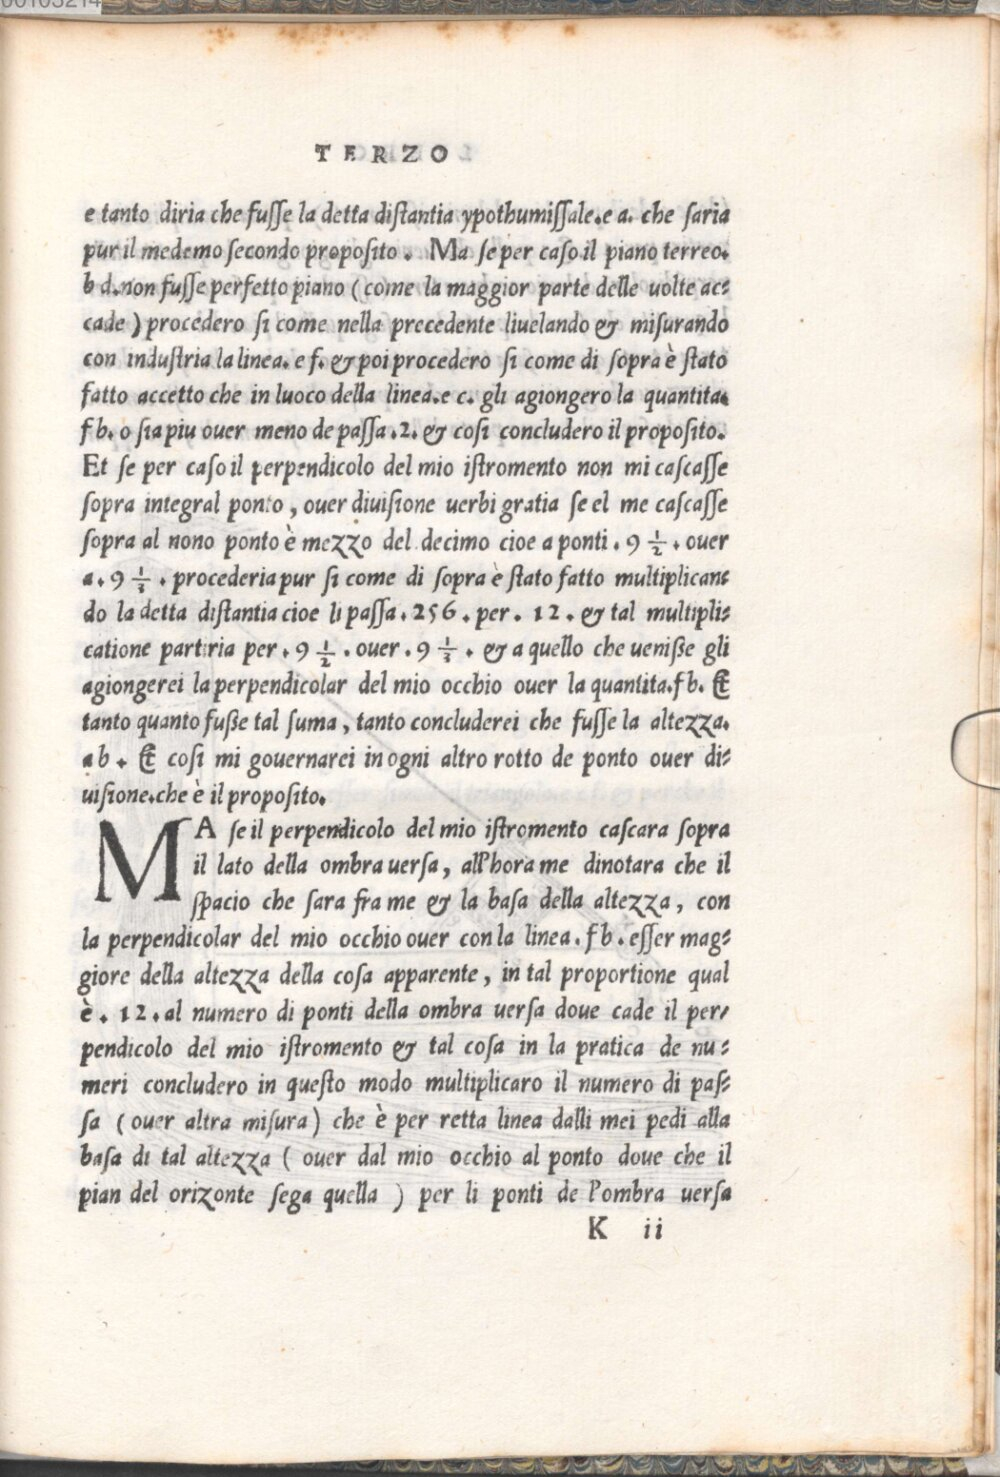 00103214
TERZO
e tanto diria che fuſſe la detta diſtantia ypothumiſſale.e a. che ſaria
pur il medemo ſecondo propoſito . Ma ſe per caſo il piano terreo.
b d.non fuſſe perfetto piano (come la maggior parte delle uolte ac⸗
cade ) procedero ſi come nella precedente liuelando & miſurando
con induſtria la linea. e f. & poi procedero ſi come di ſopra è ſtato
fatto accetto che in luoco della linea.e c. gli agiongero la quantita.
f b. o ſia piu ouer meno de paſſa .2. & coſi concludero il propoſito.
Et ſe per caſo il perpendicolo del mio iſtromento non mi caſcaſſe
ſopra integral ponto , ouer diuiſione uerbi gratia ſe el me caſcaſſe
ſopra al nono ponto è mezzo del decimo cioe a ponti . 9 1/2 . ouer
a. 9 1/3 . procederia pur ſi come di ſopra è ſtato fatto multiplican⸗
do la detta diſtantia cioe li paſſa . 256 . per . 12 . & tal multipli⸗
catione partiria per . 9 1/2 . ouer . 9 1/3 . & a quello che ueniſſe gli
agiongerei la perpendicolar del mio occhio ouer la quantita.f b. Et
tanto quanto fuſſe tal ſuma , tanto concluderei che fuſſe la altezza.
a b . Et coſi mi gouernarei in ogni altro rotto de ponto ouer di⸗
uiſione.che è il propoſito.
MA ſe il perpendicolo del mio iſtromento caſcara ſopra
il lato della ombra uerſa , all'hora me dinotara che il
ſpacio che ſara fra me & la baſa della altezza , con
la perpendicolar del mio occhio ouer con la linea . f b . eſſer mag⸗
giore della altezza della coſa apparente , in tal proportione qual
è . 12 . al numero di ponti della ombra uerſa doue cade il per/
pendicolo del mio iſtromento & tal coſa in la pratica de nu⸗
meri concludero in queſto modo multiplicaro il numero di paſ⸗
ſa ( ouer altra miſura ) che è per retta linea dalli mei pedi alla
baſa di tal altezza ( ouer dal mio occhio al ponto doue che il
pian del orizonte ſega quella ) per li ponti de l'ombra uerſa
K ii